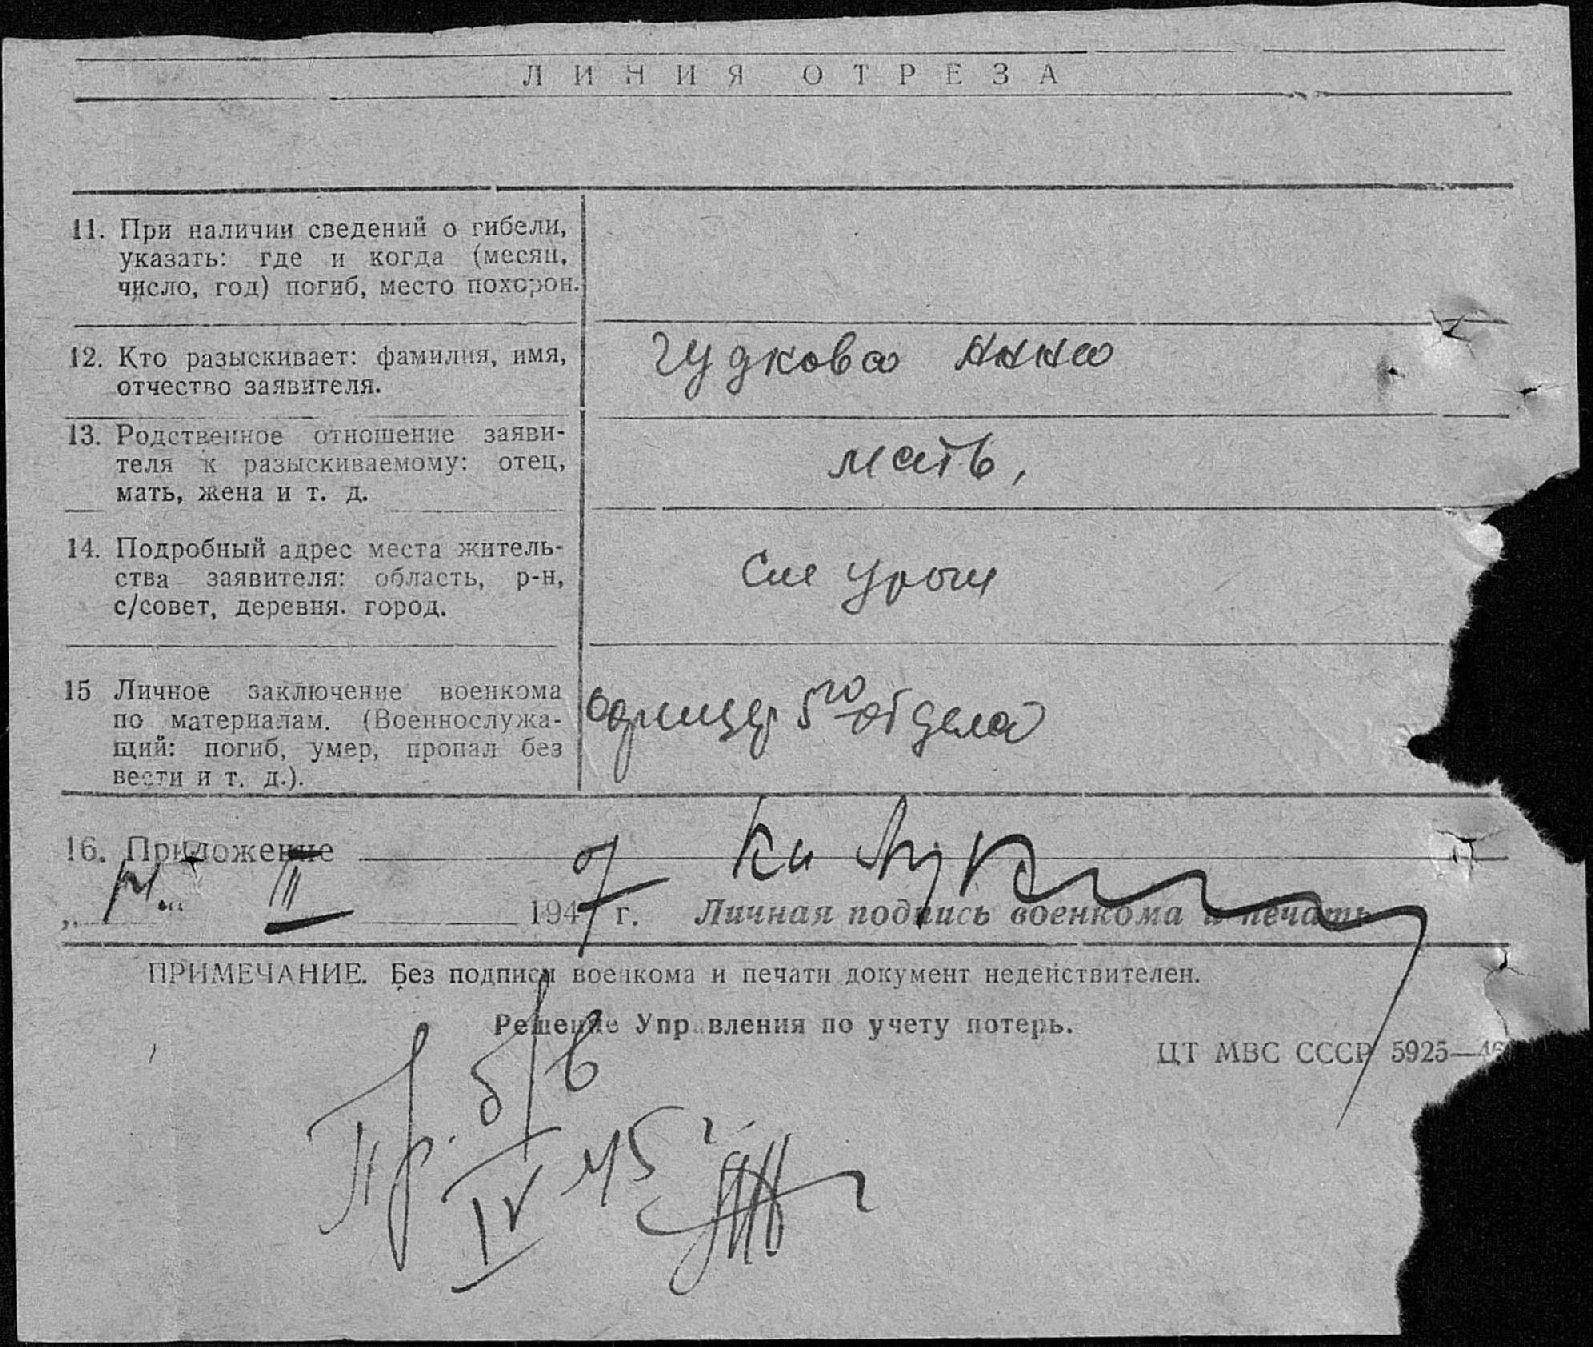 ЛИНИЯ ОТРЕЗА
11. При наличии сведений о гибели,
указать: где и когда (месяц,
число, год) погиб, место похорон.
12. Кто разыскивает: фамилия, имя,
отчество заявителя.
Гудкова Анна
13. Родственное отношение заяви-
теля к разыскиваемому: отец,
мать, жена и т. д.
мать,
14. Подробный адрес места житель-
ства заявителя: область, р-н,
с/совет, деревня. город.
15 Личное заключение военкома
по материалам. (Военнослужа-
щий: погиб, умер, пропал без
вести и т. д.).
офицер 5го отдела
16. Приложение
III 1947 г. Личная подпись военкома и печать
ПРИМЕЧАНИЕ. Без подписи военкома и печати документ недействителен.
Решение Управления по учету потерь.
ЦТ МВС СССР 5925—46
Пр. б/в
IV 45 г.